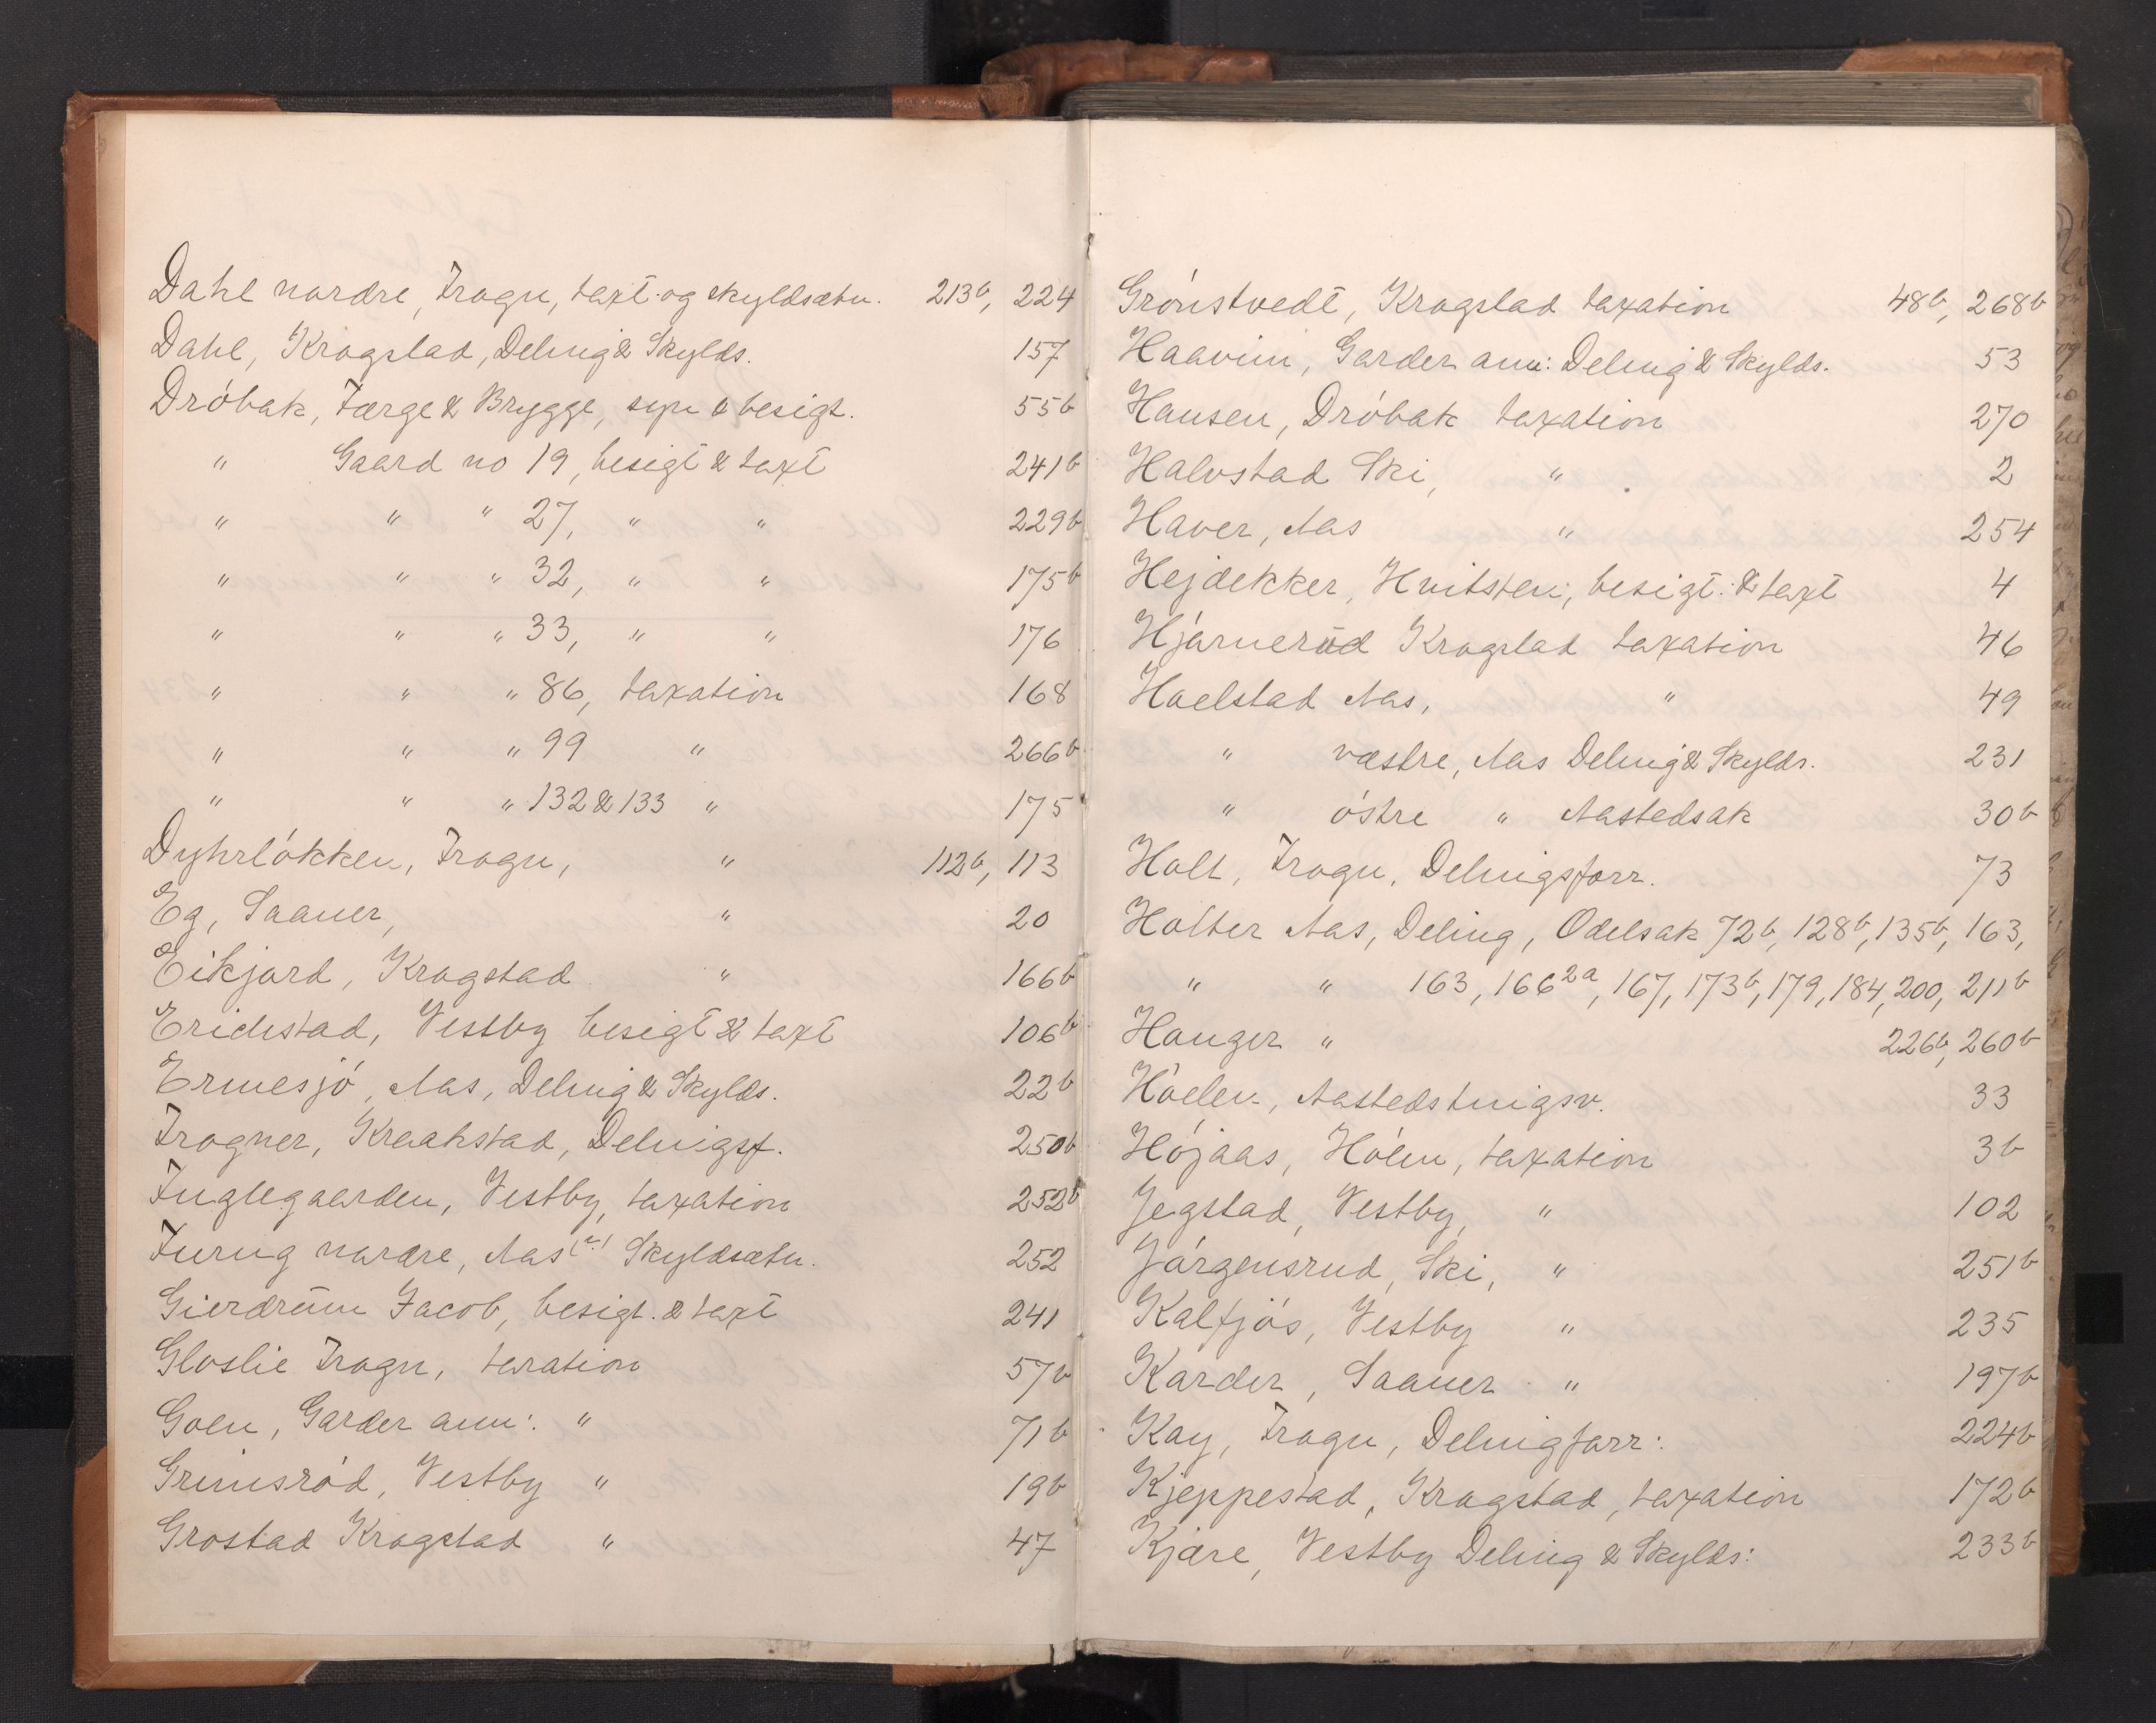 Dahl nordre, Frogn, taxt. og skyldsætn. 213b, 224
Dahl, Krogstad, Deling & Skylds. 157
Dröbak, Færge & Brygge, syn & besigt. 55b
" Gaard no 19, besigt & taxt 241b
" " " 27, " " 229b
" " " 32, " " 175b
" " " 33, " " 176
" " " 86, taxation 168
" " " 99 " 266b
" " " 132 & 133 " 175
Dyhrlökken, Frogn, " 112b, 113
Eg, Saaner, " 20
Eikjord, Krogstad " 166b
Eridstad, Vestby besigt & taxt 106b
Ermesjö, Aas, Deling & Skylds. 22b
Frogner, Kraakstad, Delingsf. 250b
Fuglegaarden, Vestby, taxation 252b
Furug nordre, Aas Skyldsætn. 252
Gierdrum Jacob, besigt. & taxt 241
Gloslie Frogn, taxation 57b
Goen, Garder ann: " 71b
Grimsröd, Vestby " 19b
Grostad Krogstad " 47
Grönstvedt, Krogstad taxation 48b, 268b
Haavim, Garder ann: Deling & Skylds. 53
Hansen, Dröbak taxation 270
Halvstad Ski, " 2
Haver, Aas " 254
Hejdekker, Hvitsten, besigt. & taxt 4
Hjärneröd Krogstad taxation 46
Hoelstad Aas, " 49
" vestre, Aas Deling & Skylds. 231
" östre " Aastedsak 30b
Holt, Frogn, Delingsforr. 73
Holter Aas, Deling, Odelsak 72b, 128b, 135b, 163,
" " 163, 166 2a, 167, 173b, 179, 184, 200, 211b
Hauger " 226b, 260b
Höelen, Aastedstingsv. 33
Höjaas, Hölen, taxation 3b
Jegstad, Vestby, " 102
Jörgensrud, Ski, " 251b
Kalfjös, Vestby " 235
Karder, Saaner " 197b
Kay, Frogn, Delingforr: 224b
Kjeppestad, Krogstad, taxation 172b
Kjære, Vestby Deling & Skylds: 233b